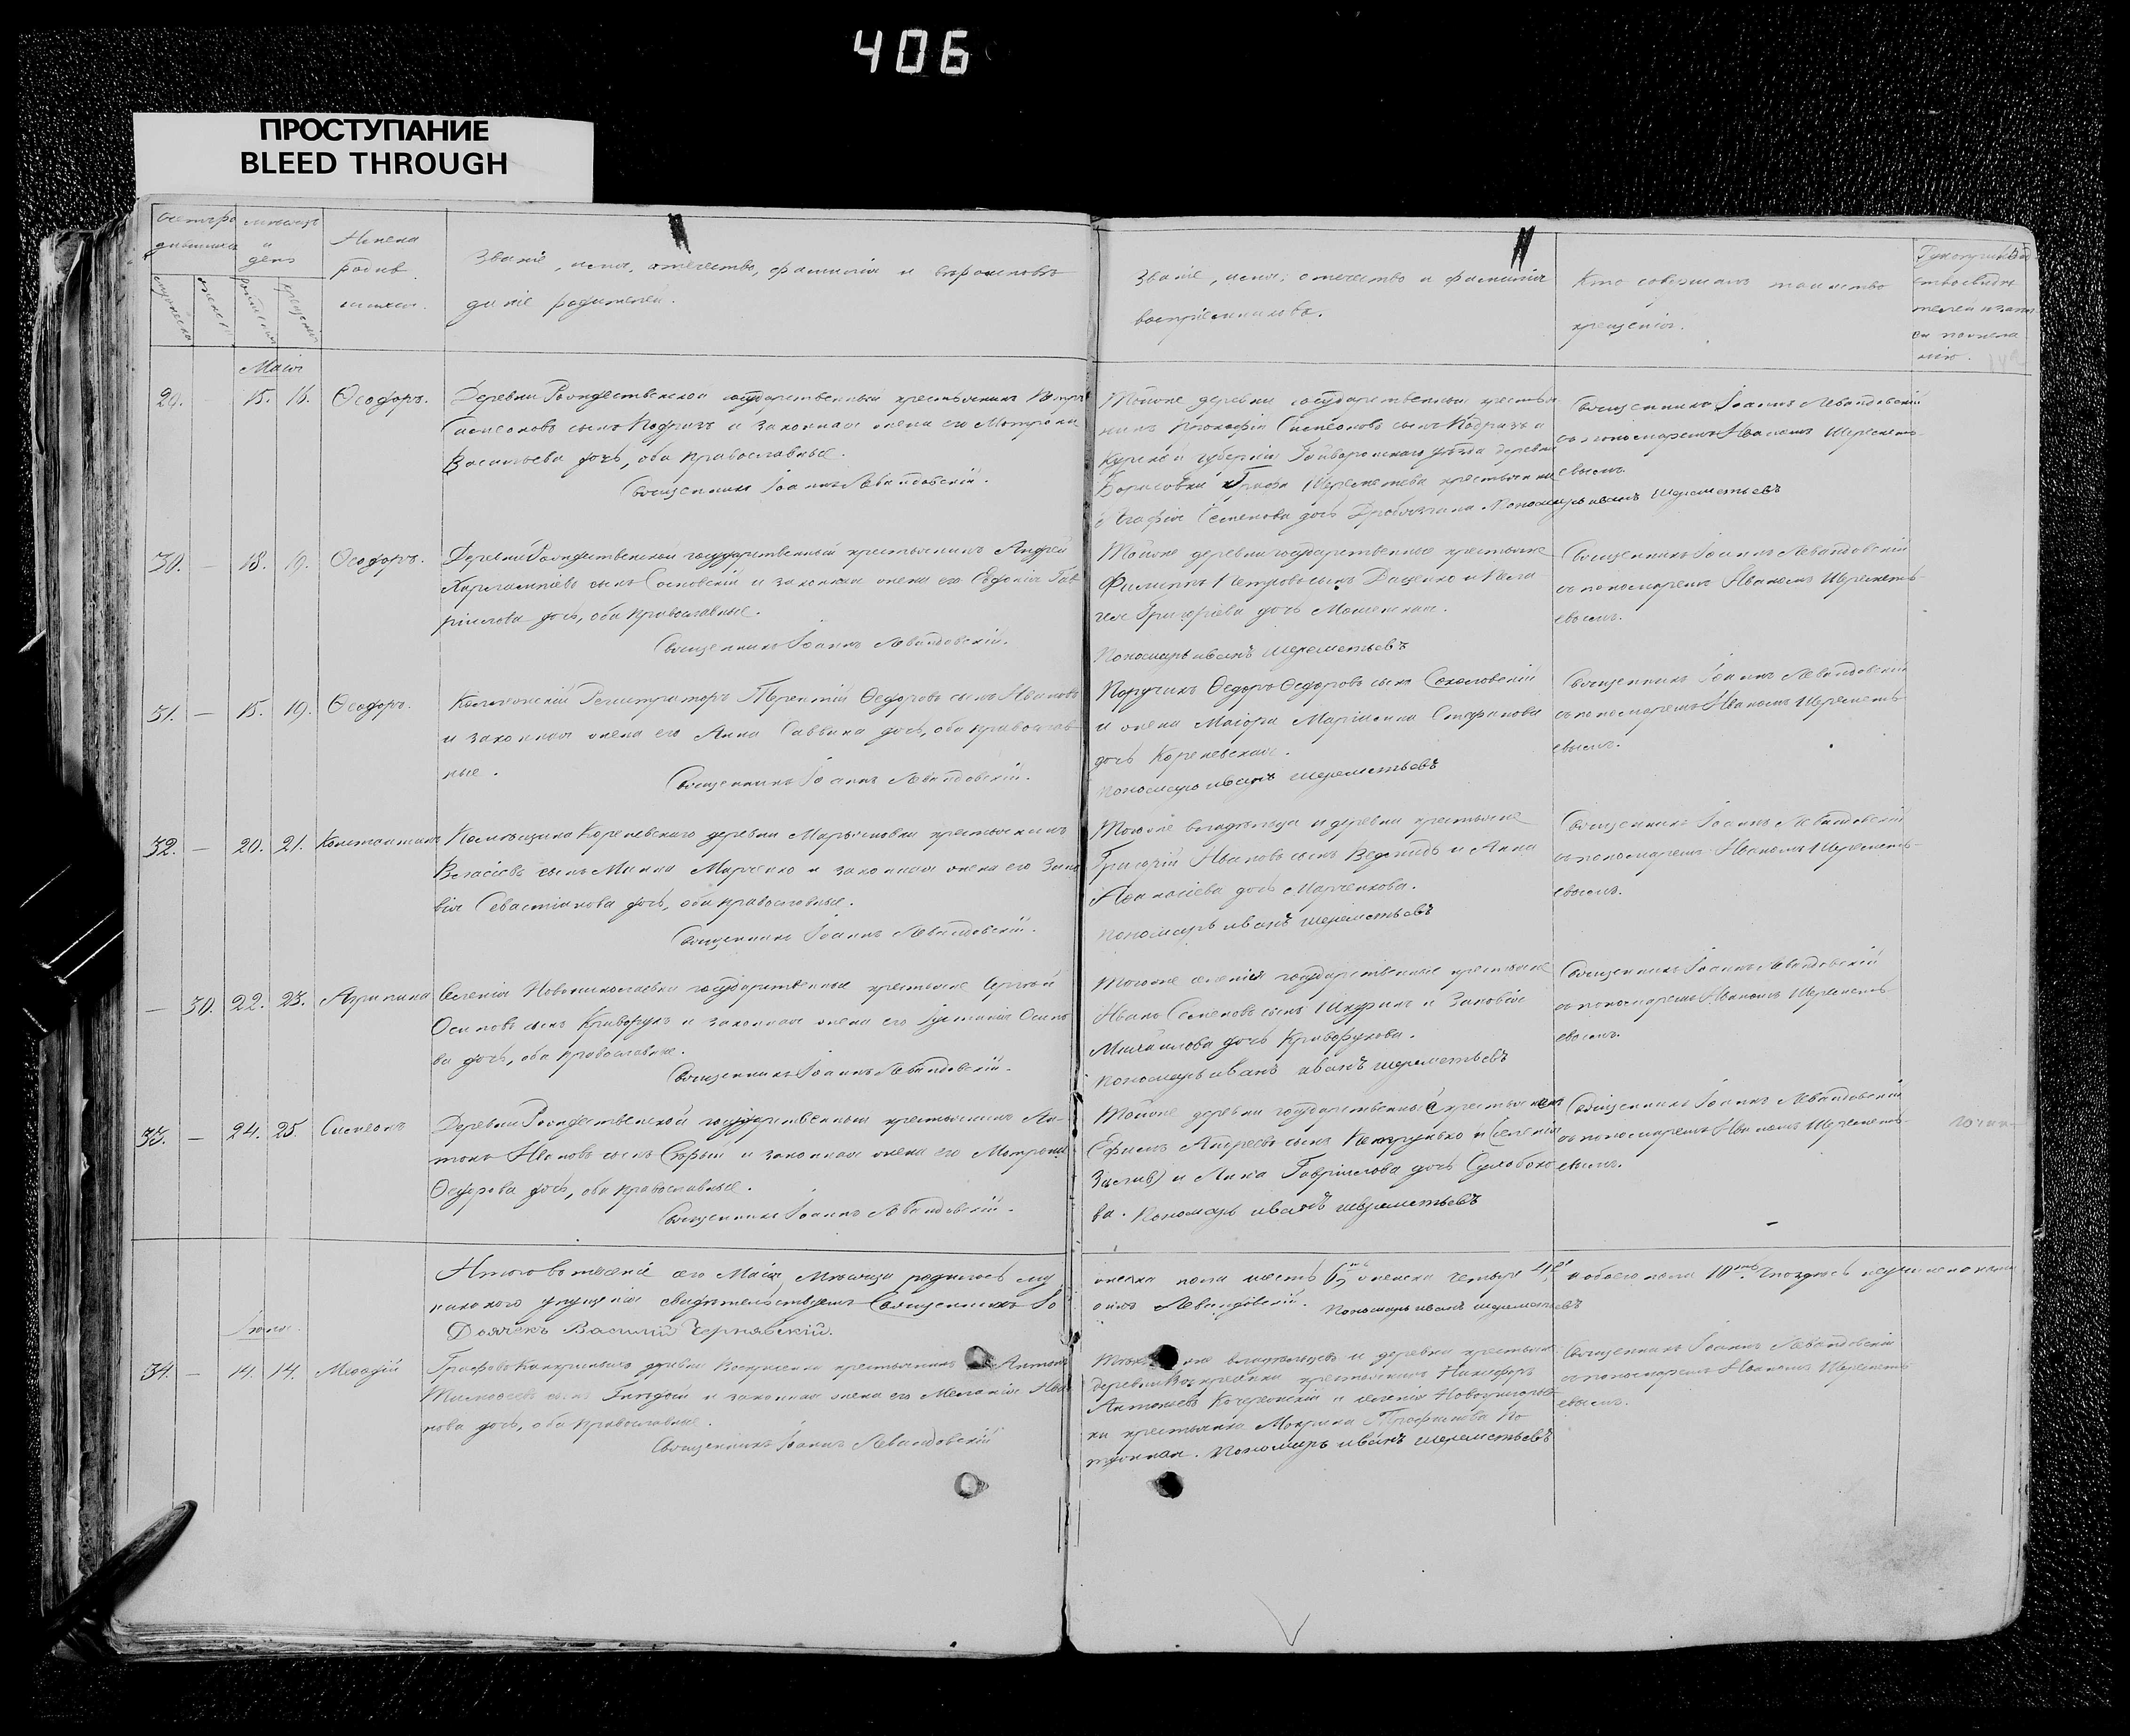 406
ПРОСТУПАНИЕ
BLEED THROUGH
Счетъ ро
дившихся
мужеска
женска
мѣсяцъ
и
день
рожденія
крещенія
Имена
родив
шихся.
Званіе, имя, отечество, фамилія и вѣроисповѣ
даніе родителей.
Званіе, имя, отечество и фамилія
воспріемниковъ.
Кто совершалъ таинство
крещенія.
Рукоприклад
ство свидѣ
телей о запи
си по жела
нію.
Маія
29. — 15. 16. Ѳеодоръ.
Деревни Рождественской государственный крестьянинъ Петръ
Симеоновъ сынъ Кодризъ и законная жена его Матрона
Васильева дочь, оба православные.
Священникъ Іоаннъ Левандовскій.
Тойже деревни государственный крестья
нинъ Прокофій Симеоновъ сынъ Кодризъ и
Курской губерніи Грайворонскаго уѣзда деревни
Борисовки Графа Шереметева крестьянка
Агафія Семенова дочь Пономарь иванъ шереметьевъ
Священникъ Іоаннъ Левандовскій
съ пономаремъ Иваномъ Шереметь-
евымъ.
30. — 18. 19. Ѳеодоръ.
Деревни Рождественской государственный крестьянинъ Андрей
Харлампіевъ сынъ Сосновскій и законная жена его Евдокія Гав
ріилова дочь, оба православные.
Священникъ Іоаннъ Левандовскій.
Тойже деревни государственные крестьяне
Филиппъ Петровъ сынъ Даценко и Пела
гея Григоріева дочь
Пономарь иванъ шереметьевъ
Священникъ Іоаннъ Левандовскій
съ пономаремъ Иваномъ Шереметь-
евымъ.
31. — 15. 19. Ѳеодоръ.
Коллежскій Регистраторъ Терентій Ѳедоровъ сынъ Ивановъ
и законная жена его Анна Саввина дочь, оба православ
ные.
Священникъ Іоаннъ Левандовскій.
Поручикъ Ѳедоръ Ѳедоровъ сынъ Соколовскій
и жена Маіора Маріамна Стефанова
дочь Кореневская.
пономарь иванъ шереметьевъ
Священникъ Іоаннъ Левандовскій
съ пономаремъ Иваномъ Шереметь
евымъ.
32. — 20. 21. Константинъ
Помѣщика Кореневскаго деревни Марьяновки крестьянинъ
Власіевъ сынъ Марченко и законная жена его Зино
вія Севастіанова дочь, оба православные.
Священникъ Іоаннъ Левандовскій.
Тогоже владѣльца и деревни крестьяне
Григорій Ивановъ сынъ Ведмидь и Анна
Афанасіева дочь Марченкова.
пономарь иванъ шереметьевъ
Священникъ Іоаннъ Левандовскій
съ пономаремъ Иваномъ Шереметь-
евымъ.
— 30. 22. 23. Агрипина
Селенія Новониколаевки государственные крестьяне Сергѣй
Осиповъ сынъ Криворукъ и законная жена его Іуліанія Осипо
ва дочь, оба православные.
Священникъ Іоаннъ Левандовскій.
Тогоже селенія государственные крестьяне
Иванъ Семеновъ сынъ Шкуринъ и Зиновія
Михайлова дочь Криворукова.
пономарь иванъ иванъ шереметьевъ
Священникъ Іоаннъ Левандовскій
съ пономаремъ Иваномъ Шереметь
евымъ.
33. — 24. 25. Симеонъ
Деревни Рождественской государственный крестьянинъ Ан-
тонъ Ивановъ сынъ Сѣрый и законная жена его Матрона
Ѳедорова дочь, оба православные.
Священникъ Іоаннъ Левандовскій.
Тойже деревни государственный крестьянинъ
Ефимъ Андреевъ сынъ и Селенія
и Анна Гавріилова дочь
ва. Пономарь иванъ шереметьевъ
Священникъ Іоаннъ Левандовскій
съ пономаремъ Иваномъ Шереметь-
евымъ.
Итого въ теченіе сего Маія Мѣсяца родилось му
жеска пола шесть 6, женска четыре 4, и обоего пола 10
свидѣтельствуемъ Священникъ Іо
аннъ Левандовскій. Пономарь иванъ шереметьевъ
Дьячекъ Василій Чернявскій.
Іюня.
34. — 14. 14. Меѳодій
Графовъ деревни Воскресенки крестьянинъ Антонъ
Тимофеевъ сынъ Гнѣдой и законная жена его Меланія Ива
нова дочь, оба православные.
Священникъ Іоаннъ Левандовскій
владѣльцевъ и деревни крестьяне
деревни Воскресенки крестьянинъ Никифоръ
Антоньевъ и селенія Новогригорьев
ки крестьянка Мокрина Трофимова
Пономарь иванъ шереметьевъ
Священникъ Іоаннъ Левандовскій
съ пономаремъ Иваномъ Шереметь
евымъ.